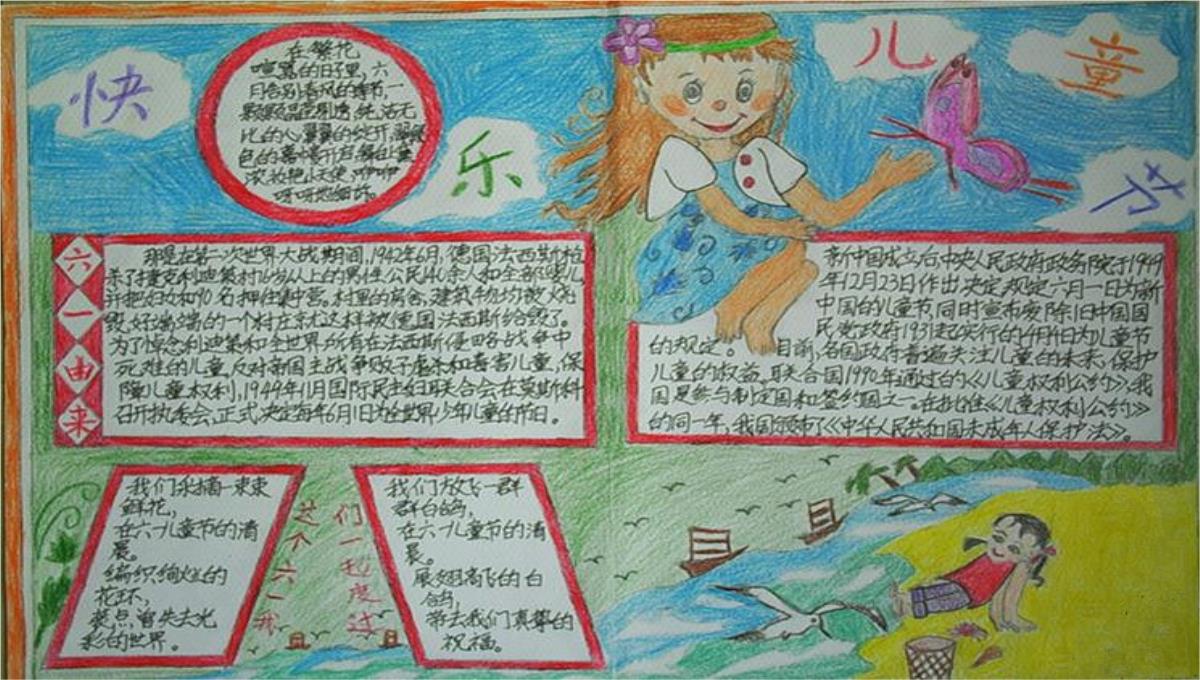 快
乐
儿
童
节
在繁花
喧嚣的日子里,六
月告别春风的季节,一
颗颗晶莹剔透,纯洁无
比的心,翼翼的绽开,
色的幕帷开启,舞台上盛
浓妆艳小天使,咿咿
呀呀
六
一
由
来
那是在第二次世界大战期间,1942年6月,德国法西斯枪
杀了捷克利迪策村16岁以上的男性公民140余人和全部婴儿
并把妇女和90名押往集中营。村里的房舍、建筑物均被烧
毁,好端端的一个村庄就这样被德国法西斯给毁了。
为了悼念利迪策和全世界所有在法西斯侵略战争中
死难的儿童,反对帝国主战争贩子虐杀和毒害儿童,保
障儿童权利,1949年11月国际民主妇联合会在莫斯科
召开执委会,正式决定每年6月1日为全世界少年儿童的节日。
新中国成立后中央人民政府政务院于1949
年12月23日作出决定规定六月一日为新
中国的儿童节,同时宣布废除旧中国国
民党政府1931起实行的4月4日为儿童节
的规定。 目前,各国政府普遍关注儿童的未来,保护
儿童的权益。联合国1990年通过的《儿童权利公约》,我
国是参与制定国和签约国之一。在批准《儿童权利公约》
的同一年,我国颁布了《中华人民共和国未成年人保护法》。
我们采摘一束束
鲜花,
在六一儿童节的清
晨。
编织绚烂的
花环,
装点曾失去光
彩的世界。
这个六一我
们一起度过
我们放飞一群
群白鸽,
在六一儿童节的清
晨。
展翅高飞的白
鸽,
带去我们真挚的
祝福。